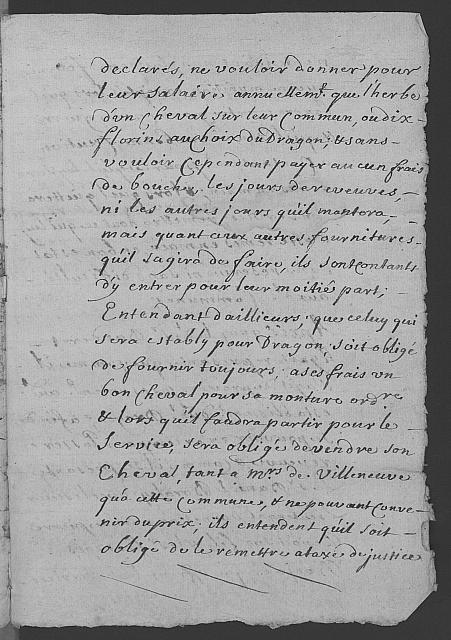 declarés, ne vouloir donner pour
leur salaire annuellemt. que l'herbe
d'un Cheval sur leur Commun, ou dix
florins au choix du Dragon; & sans
vouloir Cependant payer aucun frais
de bouche, les jours de reveues,
ni les autres jours qu'il montera
mais quant aux autres fournitures
qu'il s'agira de faire, ils sont contants
d'y entrer pour leur moitié part;
Entendant d'ailleurs, que celuy qui
sera estably pour Dragon, soit obligé
de fournir toujours, a ses frais un
bon Cheval pour sa monture ordre
& lors qu'il faudra partir pour le
Service, sera obligé de vendre son
Cheval, tant a mrs de Villeneuve
qu'a cette Commune, & ne pouvant Conve-
nir du prix, ils entendent qu'il soit
obligé de le remettre a taxe de justice